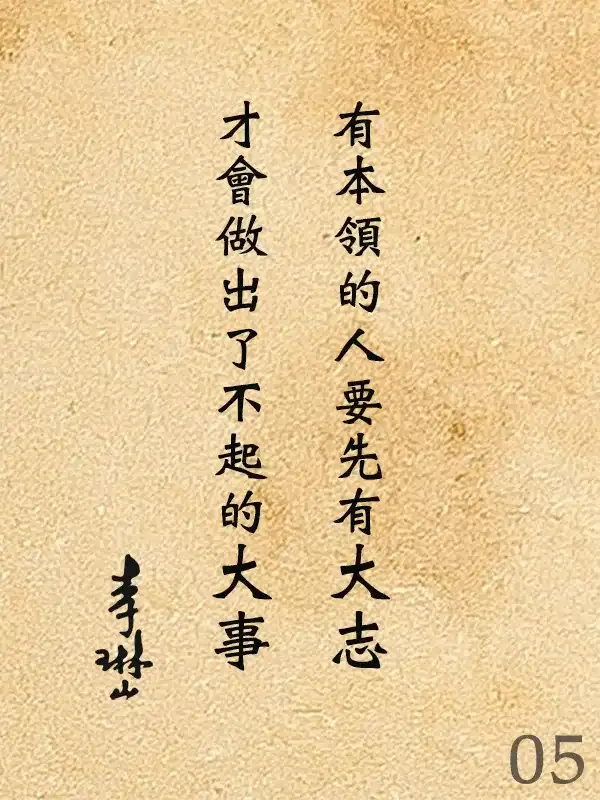 有本領的人要先有大志
才會做出了不起的大事
李琳山
05